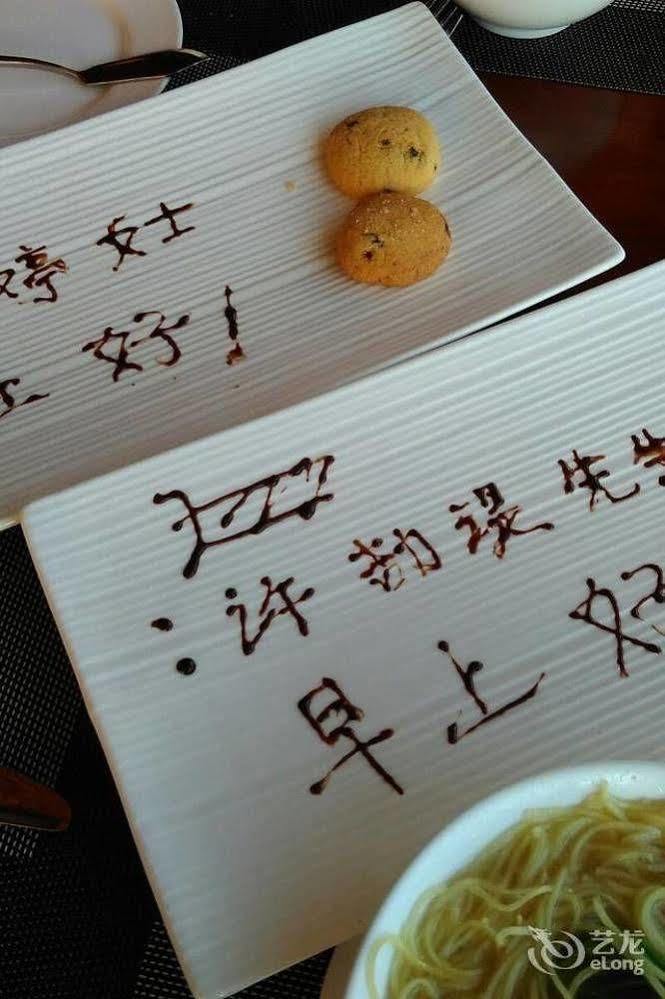 婷 女士
上 好！
许劼禔 先生
早上 好
艺龙
eLong